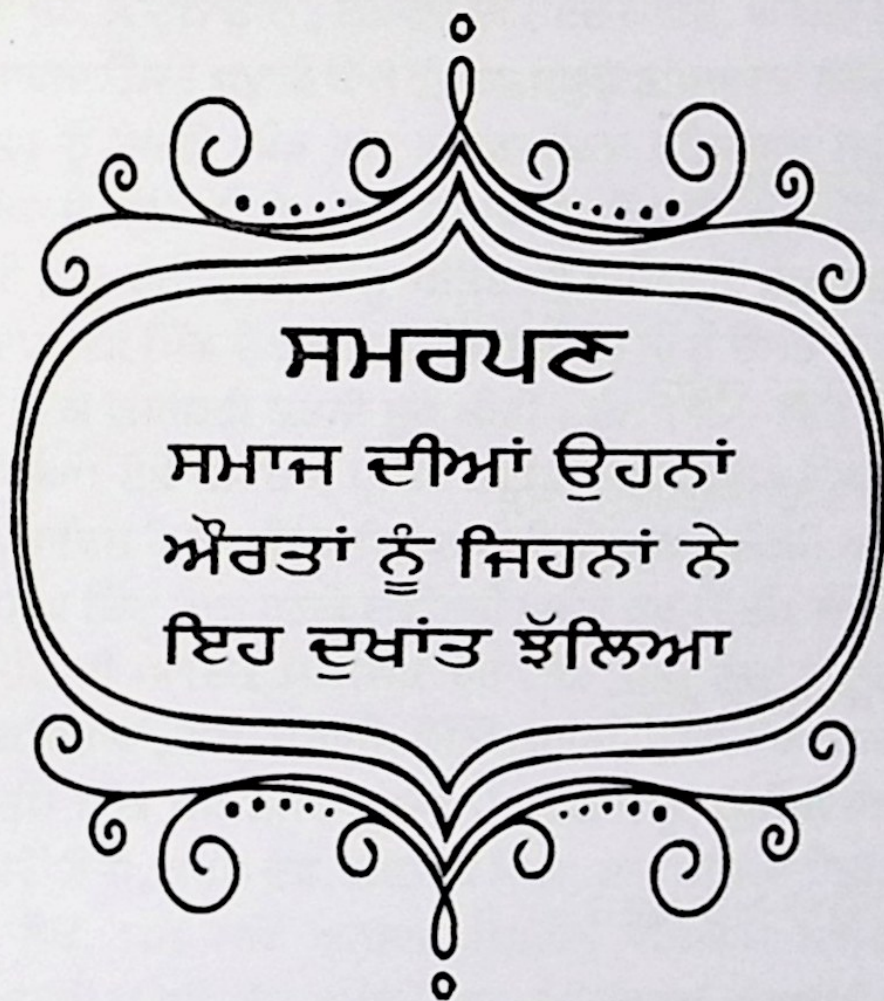 ਸਮਰਪਣ
ਸਮਾਜ ਦੀਆਂ ਉਹਨਾਂ
ਔਰਤਾਂ ਨੂੰ ਜਿਹਨਾਂ ਨੇ
ਇਹ ਦੁਖਾਂਤ ਝੱਲਿਆ